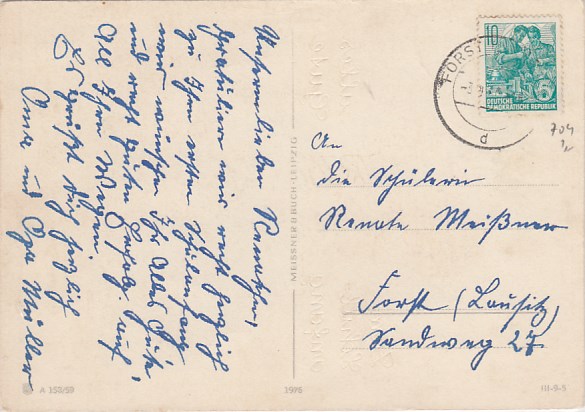 Unserm lieben Renatchen,
gratulieren wir recht herzlich
zu Ihrem ersten Schulanfang
und wünschen Ihr alles Gute
und recht guten Erfolg auf
all Ihren Wegen.
Es grüßt Dich herzlich
Oma und Opa Müller
MEISSNER & BUCH · LEIPZIG
FORST
d
10
DEUTSCHE
DEMOKRATISCHE REPUBLIK
704
An
die Schülerin
Renate Meißner
Forst (Lausitz)
Sandweg 27
A 158/59
1976
III-9-5